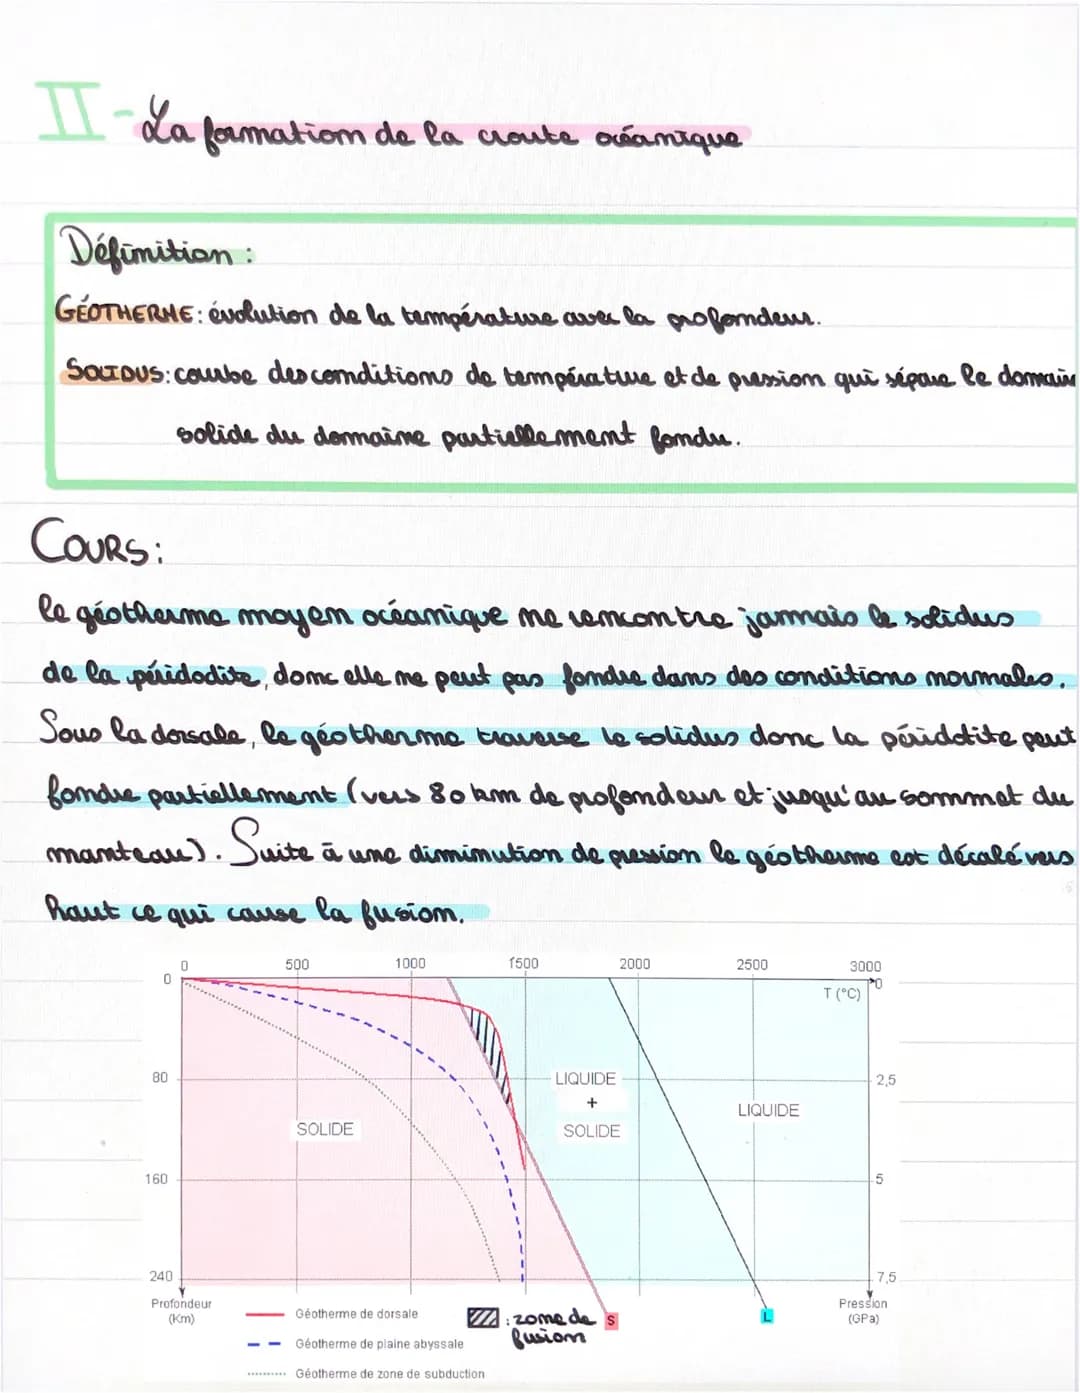 II - La formation de la croute océanique
Définition :
GÉOTHERME : évolution de la température avec la profondeur.
SOLIDUS : courbe des conditions de température et de pression qui sépare le domain
solide du domaine partiellement fondu.
COURS :
le géotherme moyen océanique ne rencontre jamais le solidus
de la péridodite, donc elle ne peut pas fondre dans des conditions normales.
Sous la dorsale, le géotherme traverse le solidus donc la péridotite peut
fondre partiellement (vers 80 km de profondeur et jusqu'au sommet du
manteau). Suite à une diminution de pression le géotherme est décalé vers
haut ce qui cause la fusion.
0 500 1000 1500 2000 2500 3000
0 T (°C) 0
80 LIQUIDE 2,5
+ LIQUIDE
SOLIDE SOLIDE
160 5
240 7,5
Profondeur (Km) Pression (GPa)
Géotherme de dorsale : zone de fusion S L
Géotherme de plaine abyssale
Géotherme de zone de subduction